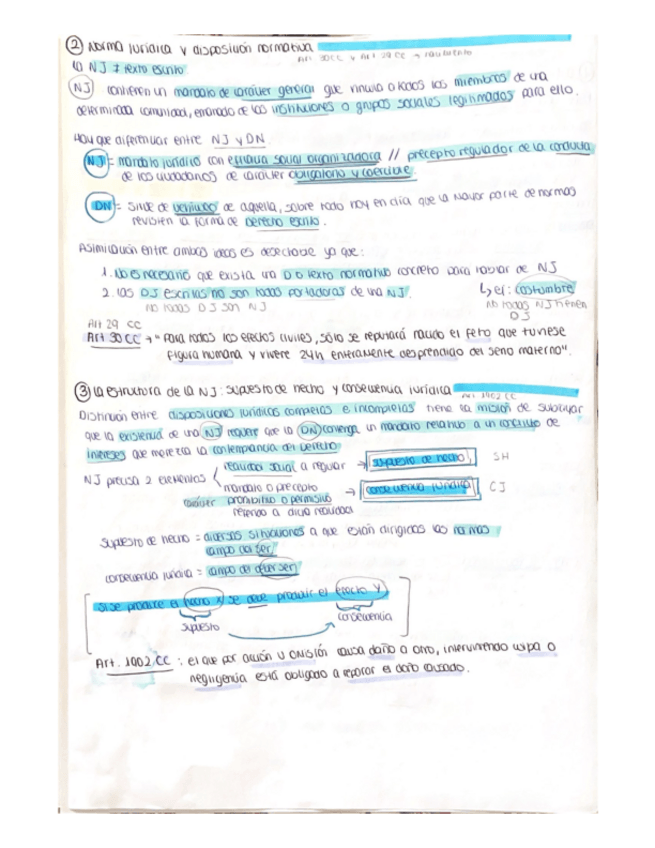 ② Norma jurídica y disposición normativa
Art 30 CC y Art 29 CC → nacimiento
la NJ ≠ texto escrito
NJ contienen un mandato de carácter general que vincula a todos los miembros de una
determinada comunidad, emanado de las instituciones o grupos sociales legitimados para ello.
Hay que diferenciar entre NJ y DN.
NJ = mandato jurídico con eficacia social organizadora // precepto regulador de la conducta
de los ciudadanos de carácter obligatorio y coercible.
DN = sirve de vehículo de aquella, sobre todo hoy en día que la mayor parte de normas
revisten la forma de derecho escrito.
Asimilación entre ambas ideas es desechable ya que:
1. No es necesario que exista una D o texto normativo concreto para hablar de NJ
2. las DJ escritas no son todas portadoras de una NJ. ↳ ej: costumbre
no todas DJ son NJ no todas NJ tienen
DJ
Art 29 CC
Art 30 CC → "Para todos los efectos civiles, sólo se reputará nacido el feto que tuviese
figura humana y viviere 24h enteramente desprendido del seno materno".
③ La estructura de la NJ: supuesto de hecho y consecuencia jurídica
Art 1902 CC
Distinción entre disposiciones jurídicas completas e incompletas tiene la misión de subrayar
que la existencia de una NJ requiere que la DN contenga un mandato relativo a un conflicto de
intereses que merezca la contemplación del derecho
NJ precisa 2 elementos
realidad social a regular → supuesto de hecho SH
mandato o precepto → consecuencia jurídica CJ
carácter prohibitivo o permisivo
referido a dicha realidad
supuesto de hecho = diversas situaciones a que están dirigidas las normas
campo del ser
consecuencia jurídica = campo del deber ser
Si se produce el hecho X, se debe producir el efecto Y
supuesto consecuencia
Art. 1902 CC : el que por acción u omisión causa daño a otro, interviniendo culpa o
negligencia está obligado a reparar el daño causado.